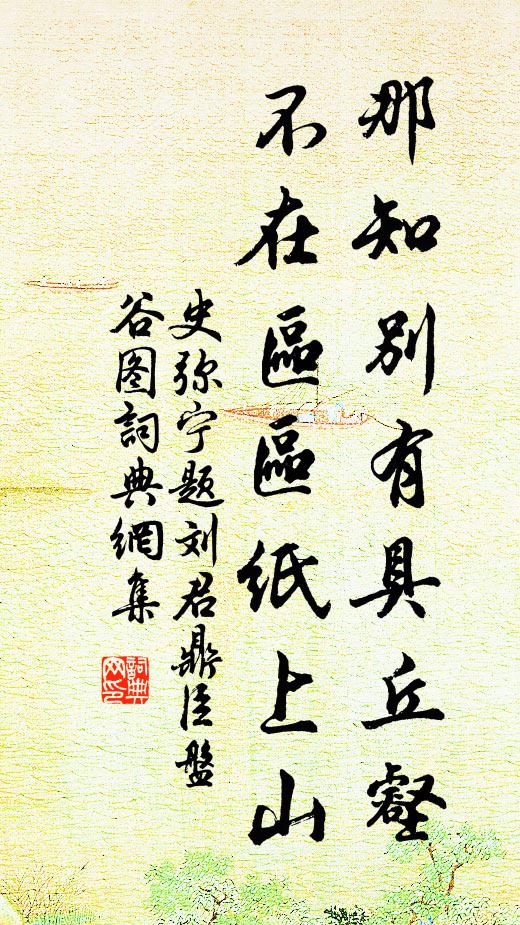 那知别有具丘壑
不在區區纸上山
史弥宁题刘君鼎臣盤
谷图詞典網集
詞典
网印